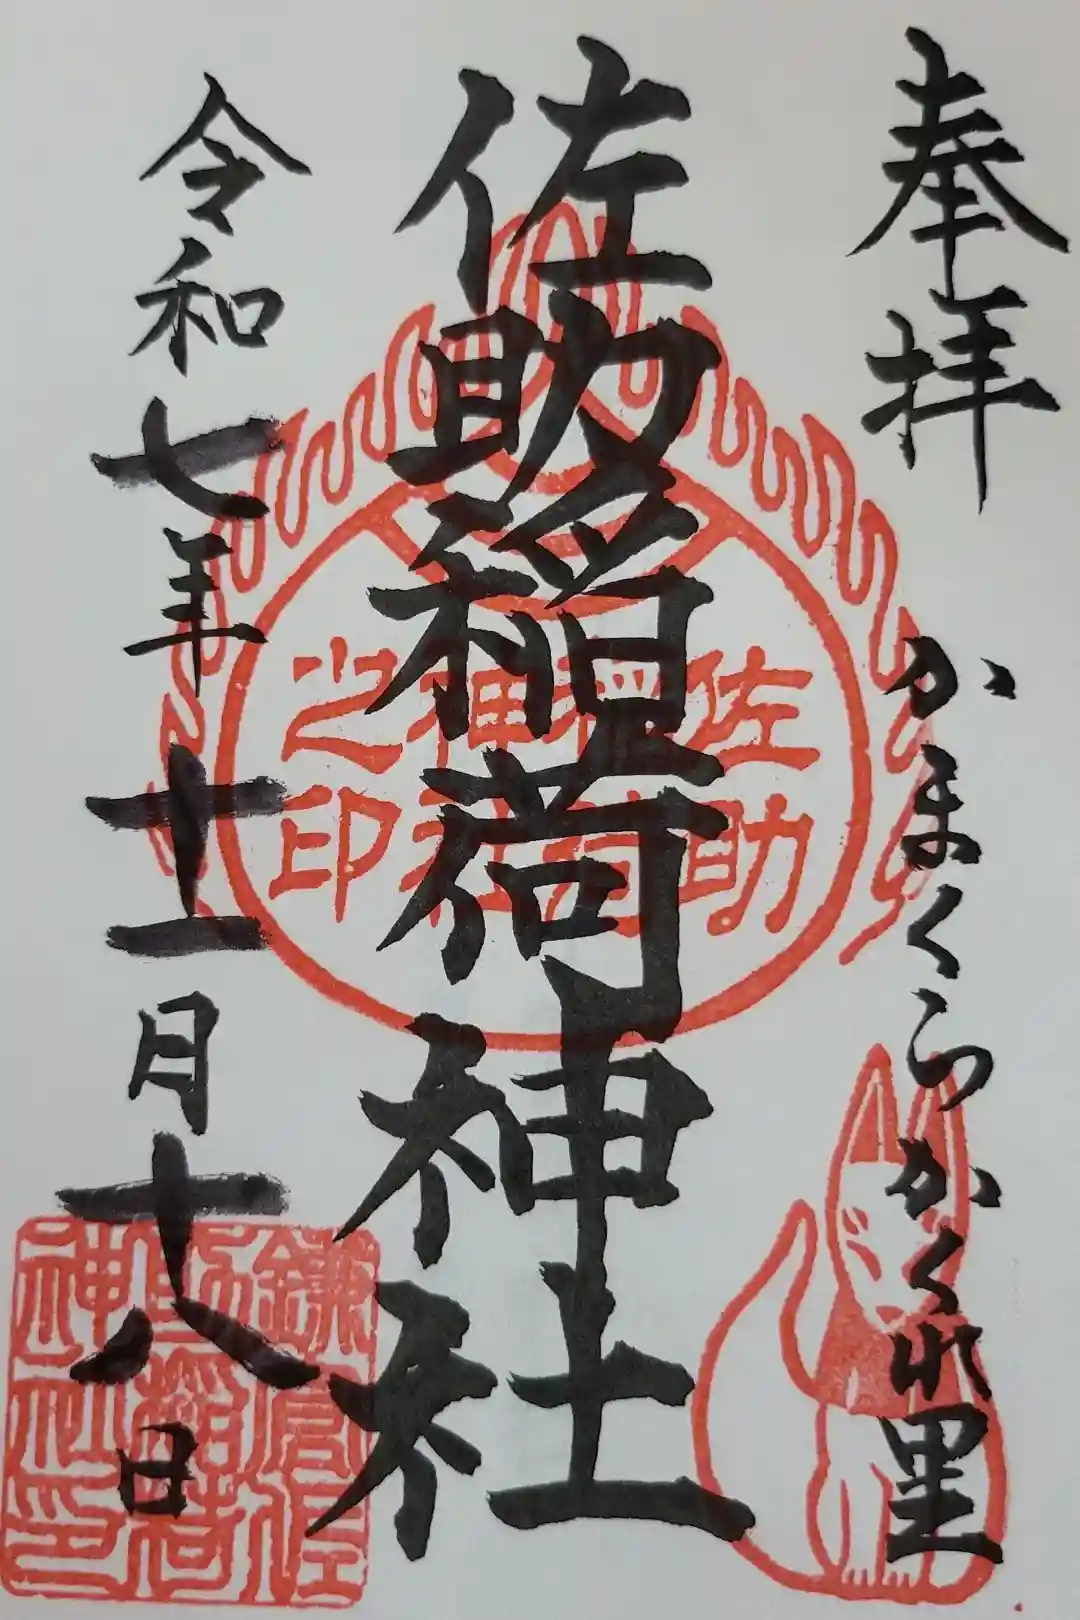 奉拝
かまくらかくれ里
佐助稲荷神社
令和七年十一月十八日
佐助
稲荷
神社
之印
鎌倉佐
助稲荷
神社印